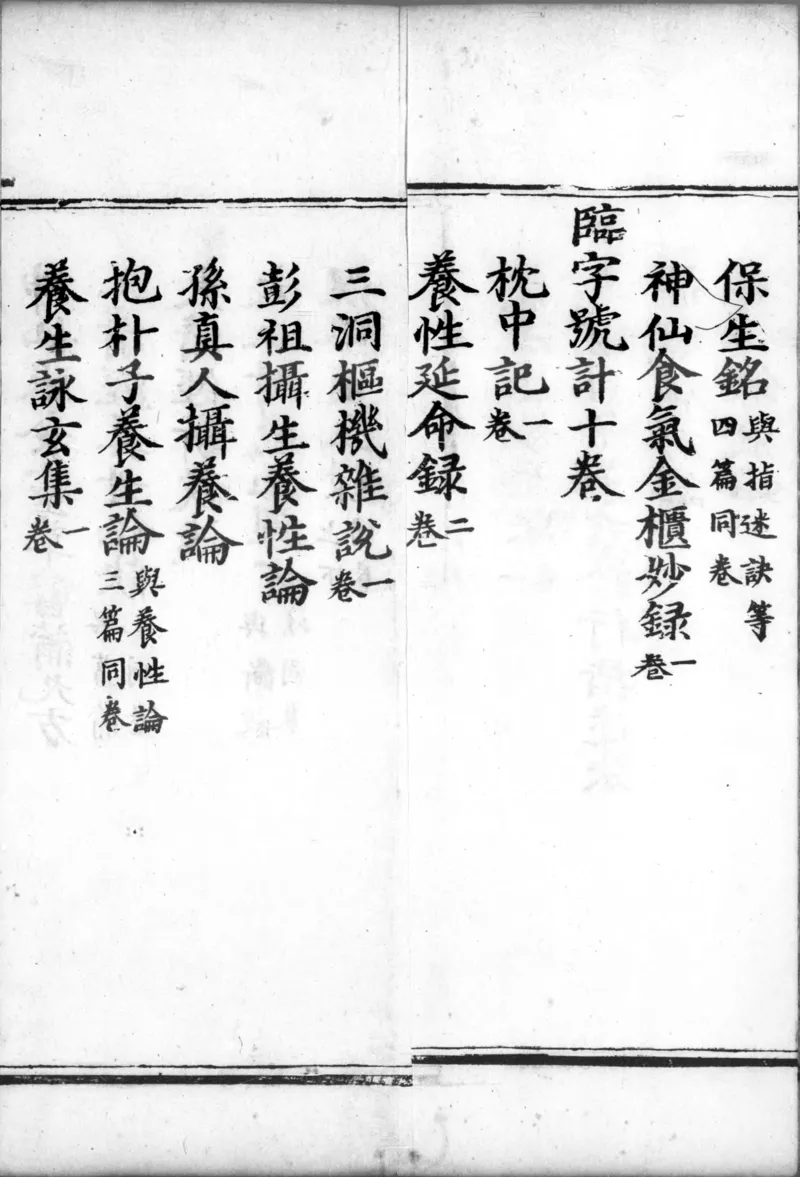 保生銘與指迷訣等四篇同卷
神仙食氣金櫃妙録一卷
臨字號計十卷
枕中記一卷
養性延命録二卷
三洞樞機雜說一卷
彭祖攝生養性論
孫真人攝養論
抱朴子養生論與養性論三篇同卷
養生詠玄集一卷